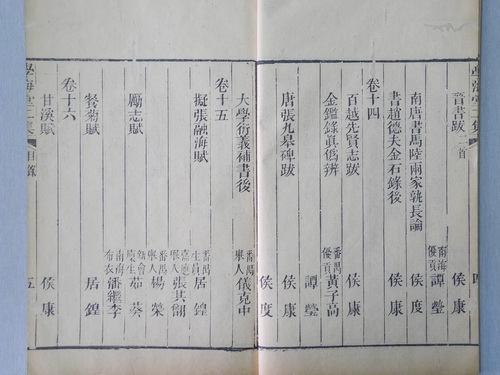 晉書跋 二首 侯康
南唐書馬陸兩家孰長論 南海優貢 譚瑩
書趙德夫金石錄後 侯康
卷十四
百越先賢志跋 侯度
金鑑錄真偽辨 番禺優貢 黃子高
譚瑩
唐張九皋碑跋 侯康
侯度
大學衍義補書後 番禺舉人 儀克中
卷十五
擬張融海賦 番禺生員 居鍠
嘉應舉人 張其䎖
勵志賦 番禺舉人 楊榮
新會廩生 茹葵
南海布衣 潘繼李
餐菊賦 居鍠
卷十六
甘溪賦 侯康
學海堂二集 目錄 五